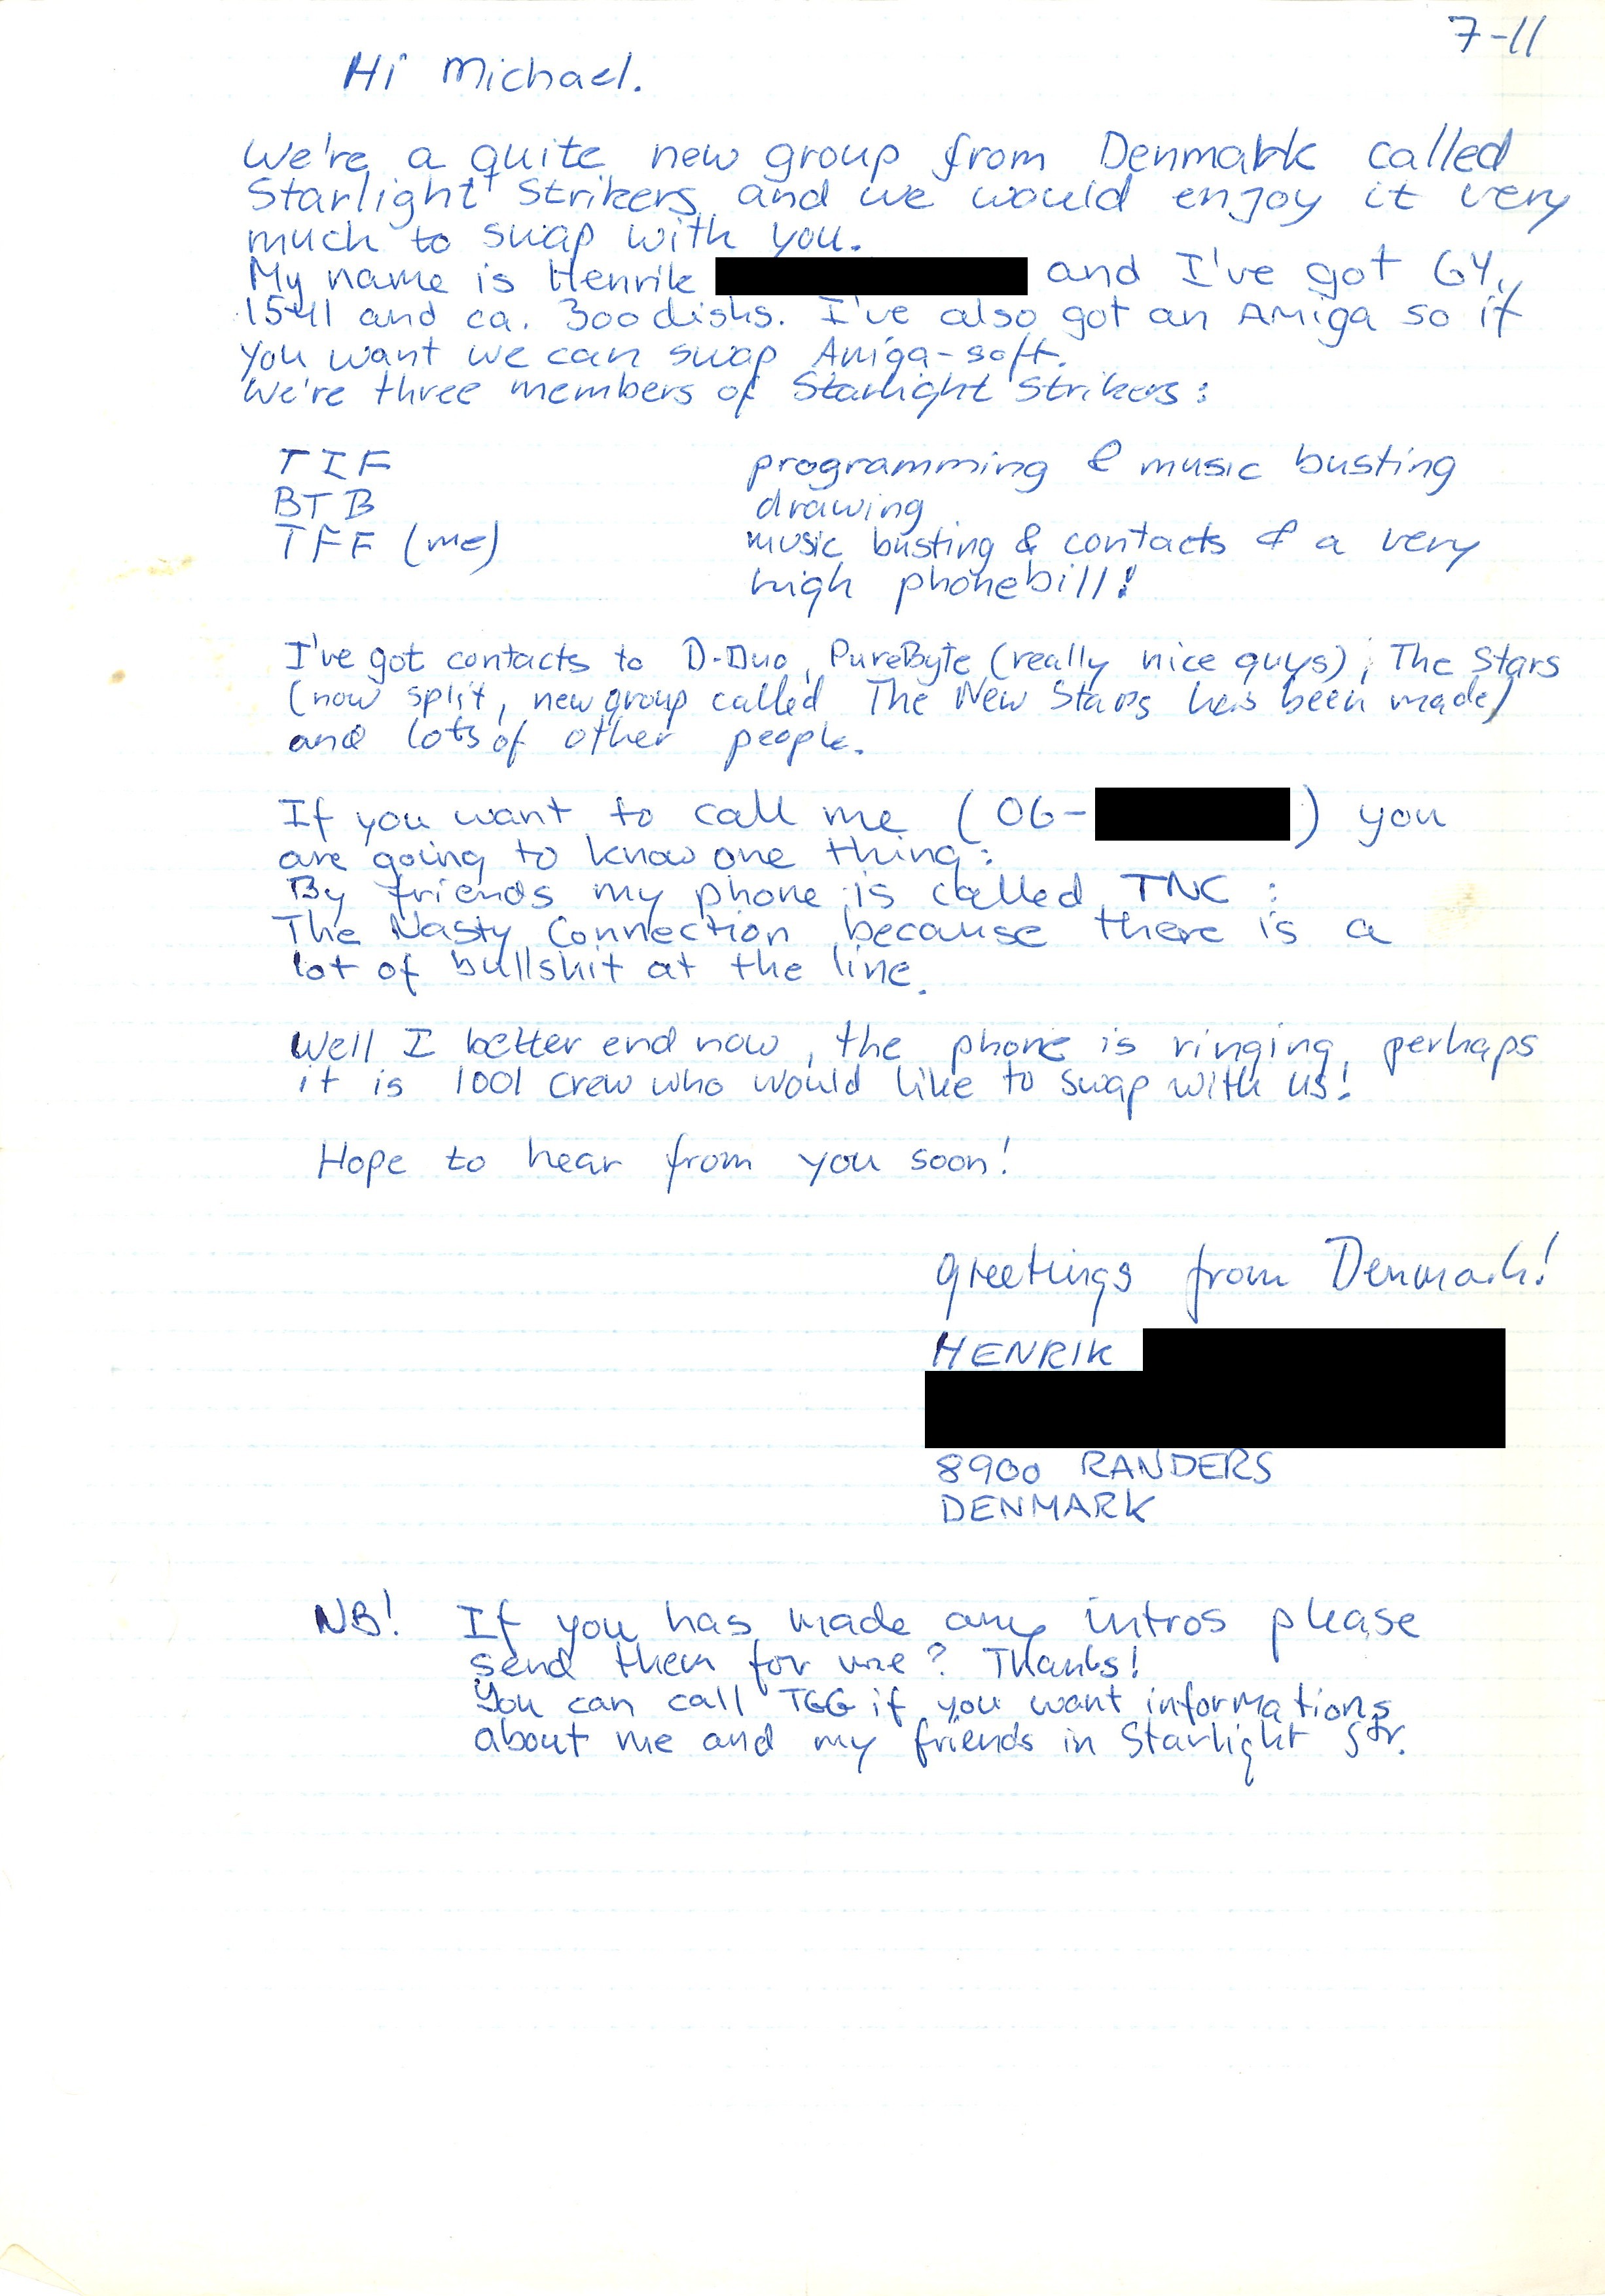 7-11
Hi Michael.
We're a quite new group from Denmark called
Starlight Strikers and we would enjoy it very
much to swap with you.
My name is Henrik and I've got 64,
1541 and ca. 300 disks. I've also got an Amiga so if
you want we can swap Amiga-soft.
We're three members of Starlight Strikers:
TIF programming & music busting
BTB drawing
TFF (me) music busting & contacts & a very
high phonebill!
I've got contacts to D-Duo, PureByte (really nice guys), The Stars
(now split, new group called The New Stars has been made)
and lots of other people.
If you want to call me (06- ) you
are going to know one thing:
By friends my phone is called TNC:
The Nasty Connection because there is a
lot of bullshit at the line.
Well I better end now, the phone is ringing, perhaps
it is 1001 crew who would like to swap with us!
Hope to hear from you soon!
greetings from Denmark!
HENRIK
8900 RANDERS
DENMARK
NB! If you has made any intros please
send them for me? Thanks!
You can call TGG if you want informations
about me and my friends in Starlight Str.